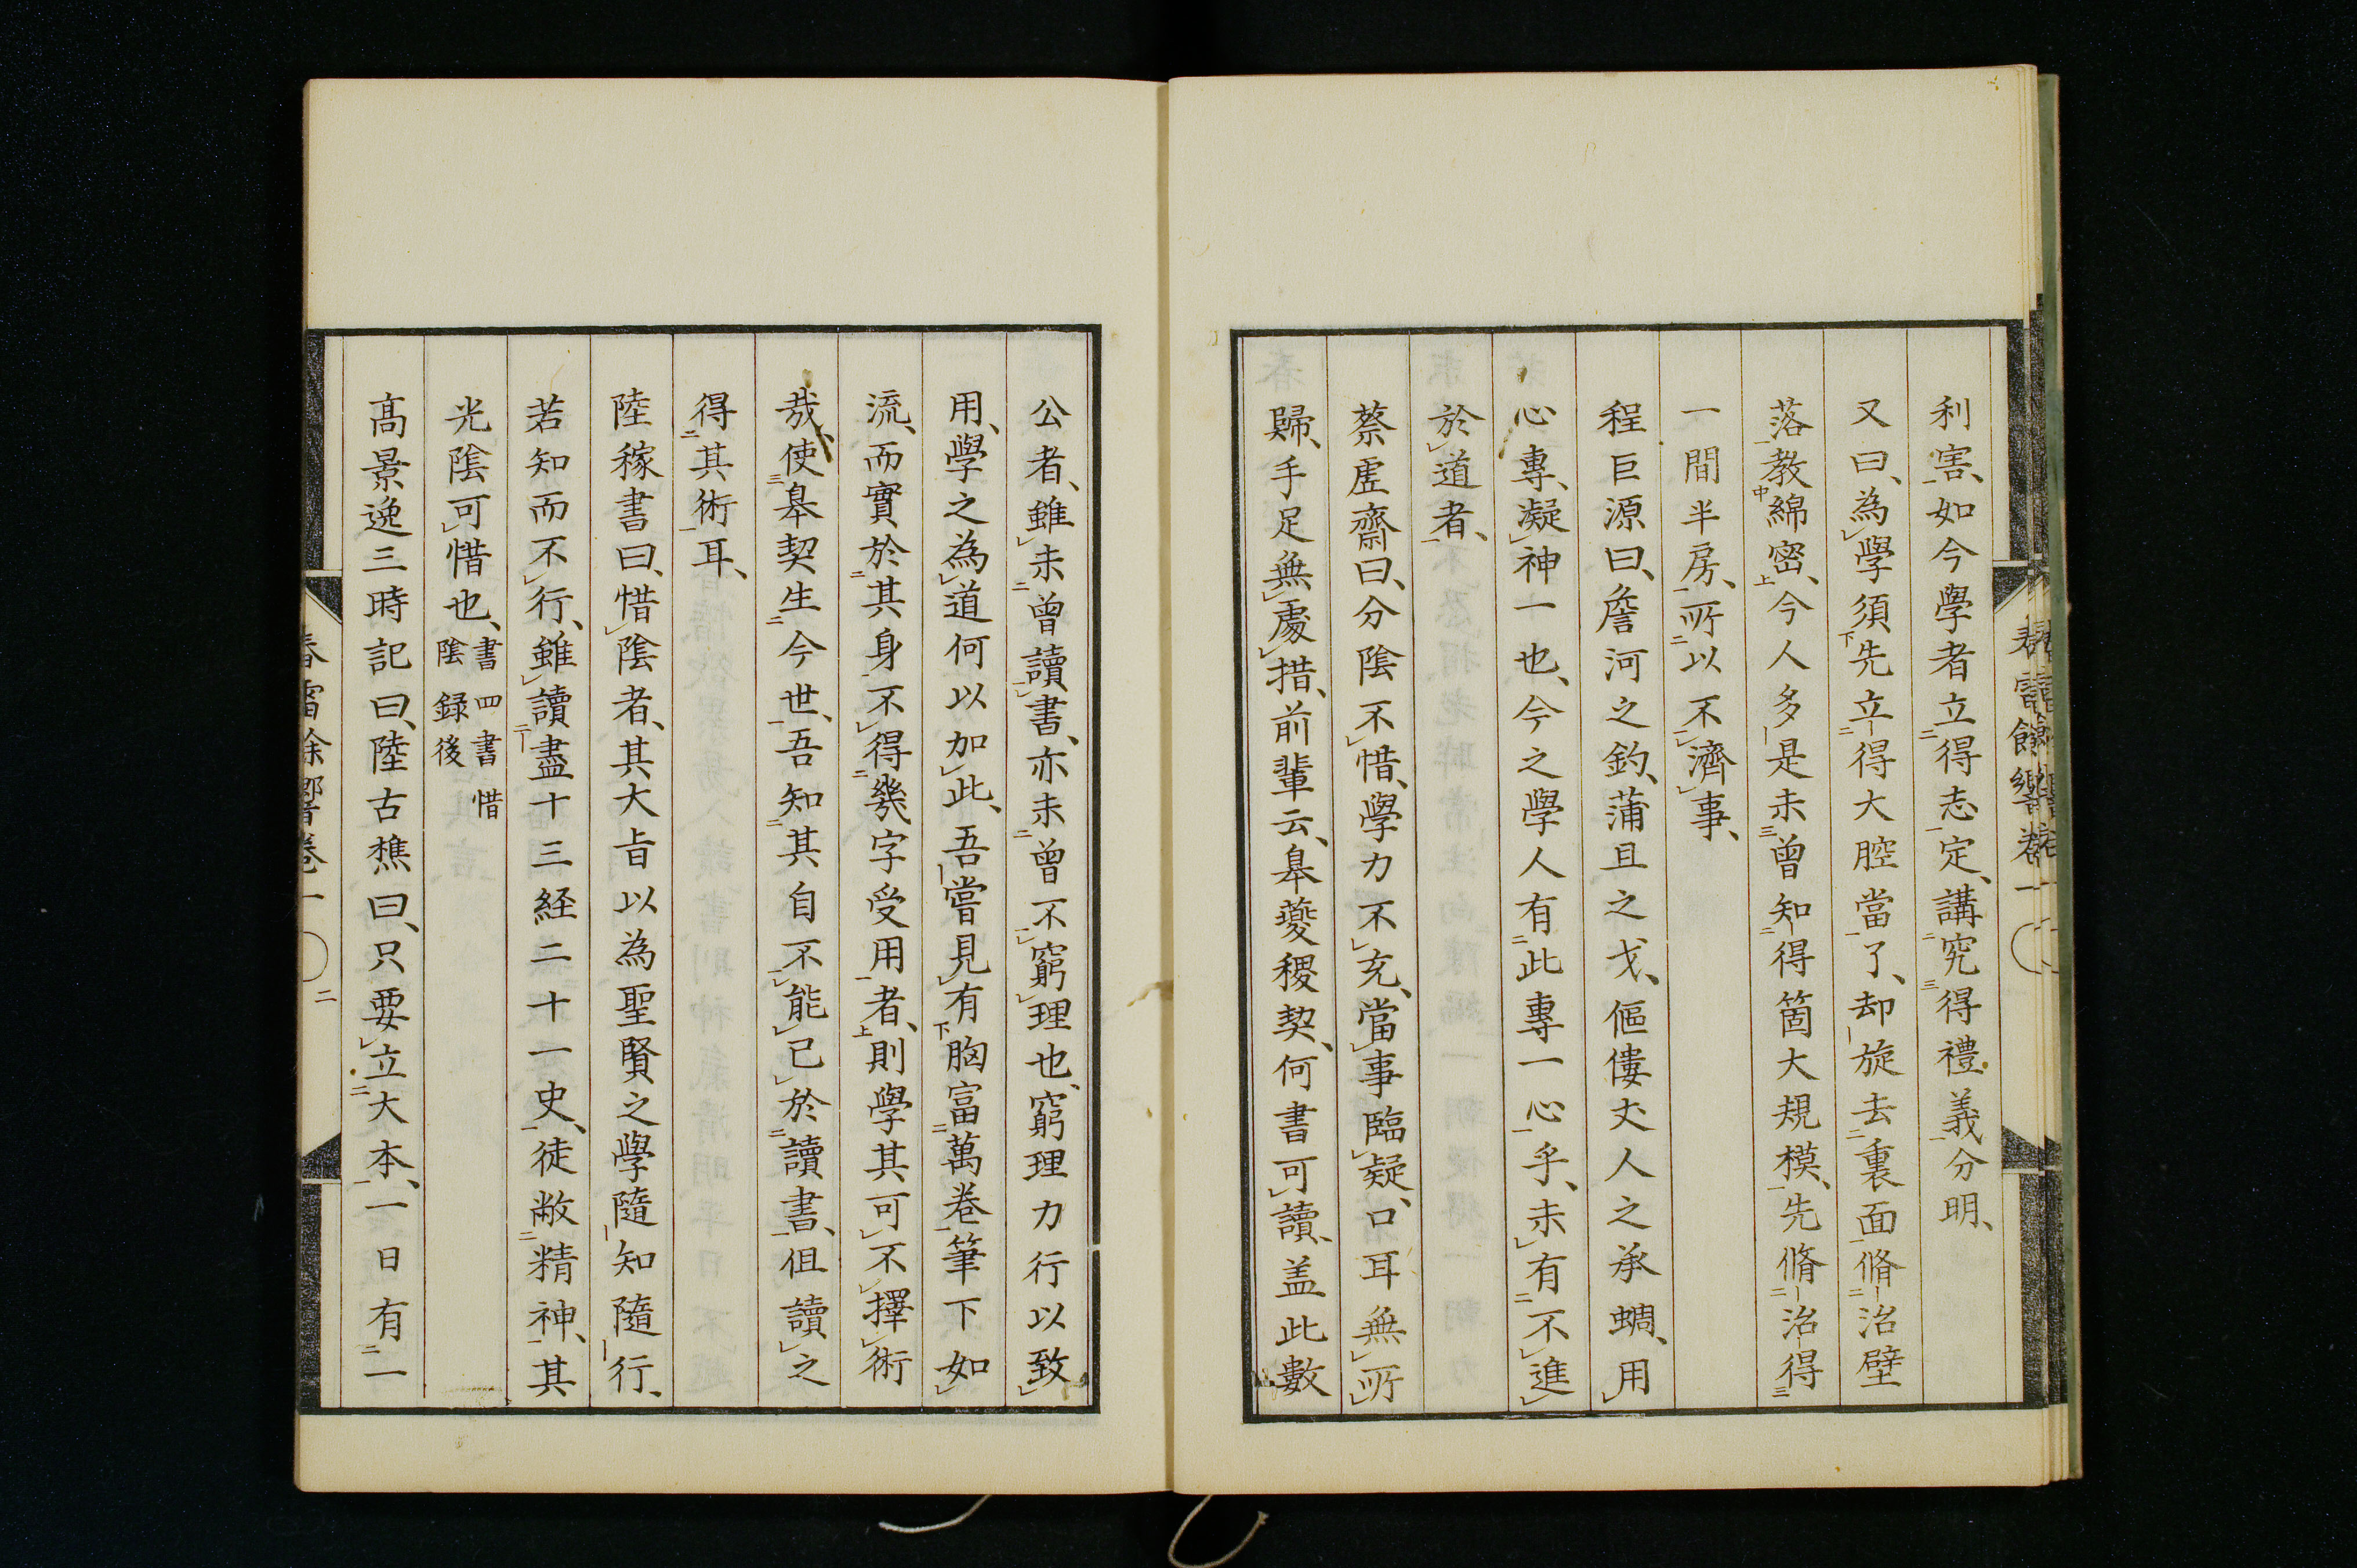 利害、如今學者立得志定、講究得禮義分明、
又曰、為學須先立得大腔當了、却旋去裏面脩治壁
落教綿密、今人多是未曾知得箇大規模、先脩治得
一間半房、所以不濟事、
程巨源曰、詹河之釣、蒲且之弋、傴僂丈人之承蜩、用
心專、凝神一也、今之學人有此專一心乎、未有不進
於道者、
蔡虛齋曰、分陰不惜、學力不充、當事臨疑、口耳無所
歸、手足無處措、前輩云、皋夔稷契、何書可讀、盖此數
公者、雖未曾讀書、亦未曾不窮理也、窮理力行以致
用、學之為道何以加此、吾嘗見有胸富萬卷筆下如
流、而實於其身不得幾字受用者、則學其可不擇術
哉、使皋契生今世、吾知其自不能已於讀書、但讀之
得其術耳、
陸稼書曰、惜陰者、其大旨以為聖賢之學隨知隨行、
若知而不行、雖讀盡十三経二十一史、徒敝精神、其
光陰可惜也、書四書惜
陰録後
高景逸三時記曰、陸古樵曰、只要立大本、一日有一
春雷餘響卷一
二